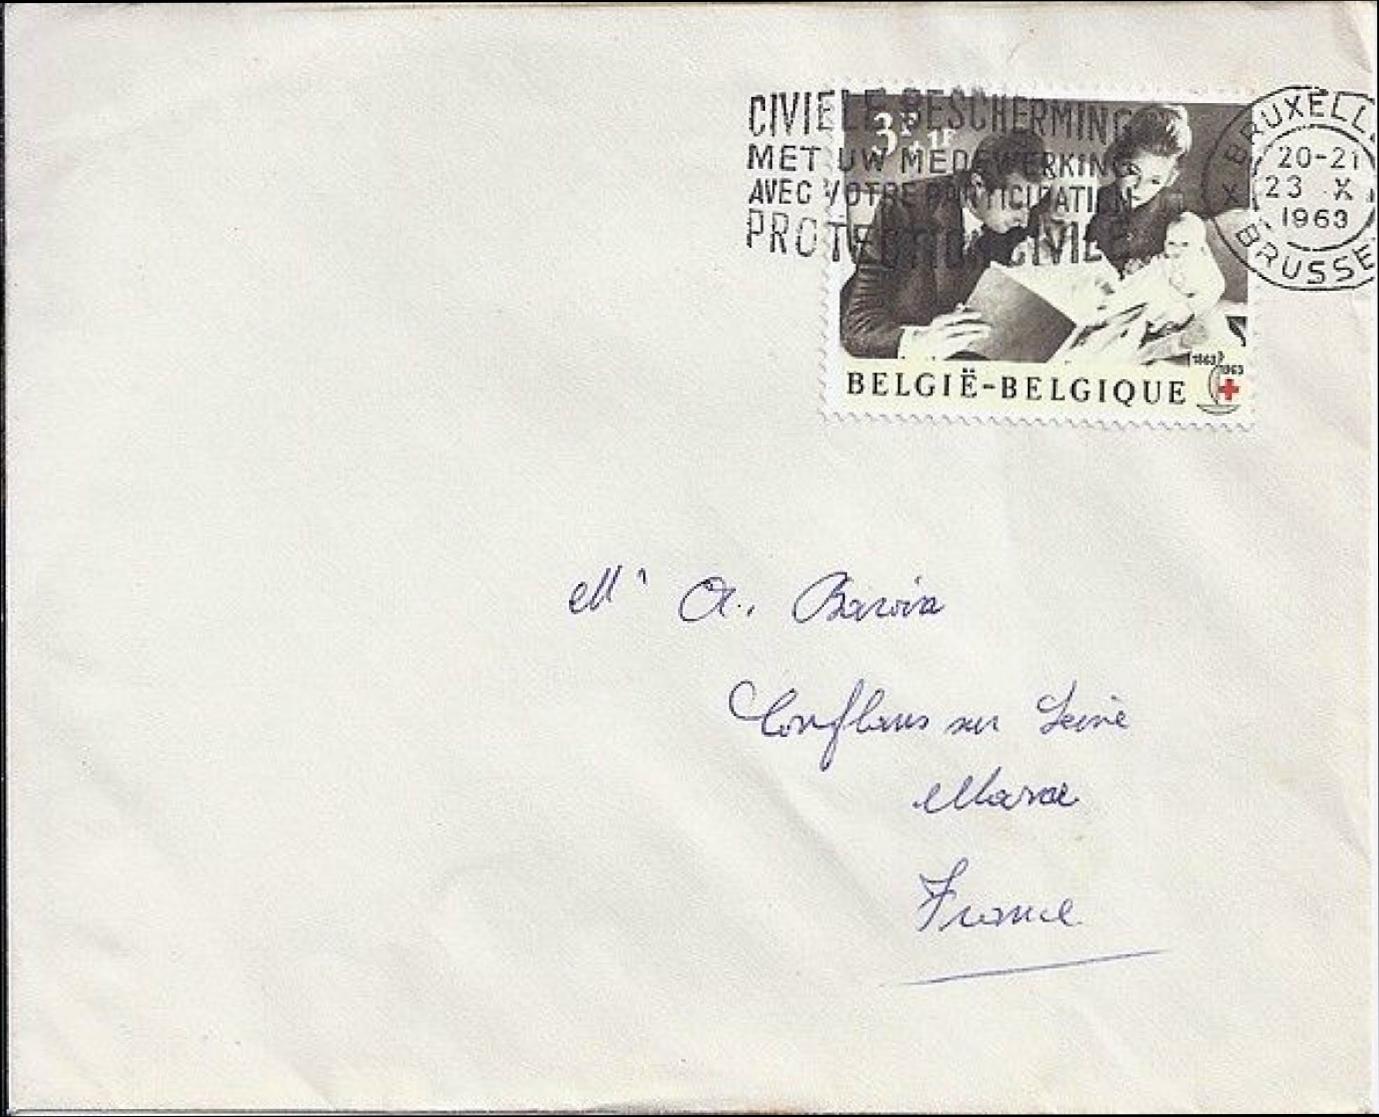 CIVIELE BESCHERMING
MET UW MEDEWERKING
AVEC VOTRE PARTICIPATION
PROTECTION CIVILE
3F + 1F
BRUXELL
20-21
23 X
1963
X
BRUSSE
1863
1963
BELGIË-BELGIQUE
Mr A.
Conflans sur Seine
Marne
France